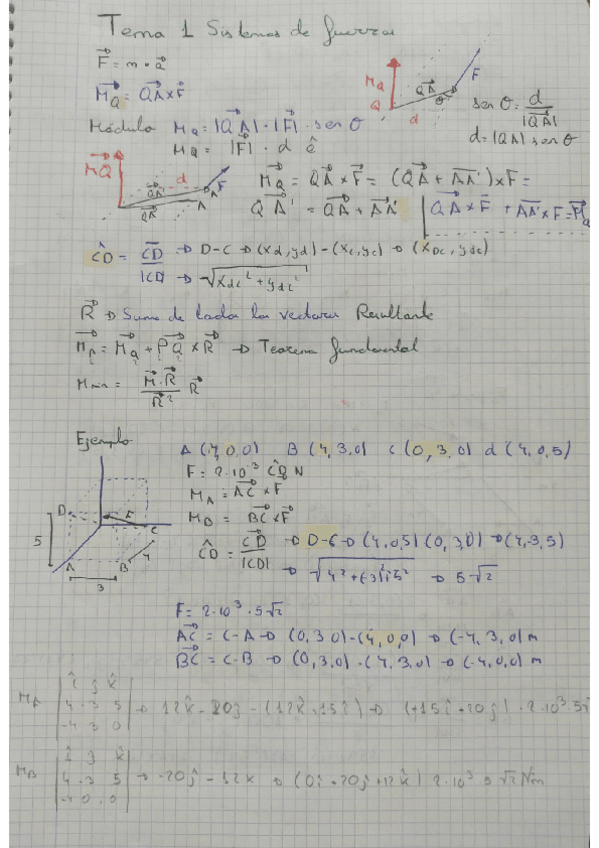 Tema 1 Sistemas de fuerzas
F = m · a
M_Q = QA x F
M_Q
Q
QA
θ
F
d
sen θ = d / |QA|
d = |QA| sen θ
Módulo M_Q = |QA| · |F| · sen θ
M_Q = |F| · d ê
MQ
QA'
QA
d
A'
A
F
M_Q = QA x F = (QA + AA') x F =
QA' = QA + AA'
QA x F + AA' x F = M_Q
ĈD = CD / |CD| → D-C → (xd, yd) - (xc, yc) → (xDC, ydc)
→ √(xdc² + ydc²)
R → Suma de todos los vectores Resultante
M_P = M_Q + PQ x R → Teorema fundamental
M min = (M · R / R²) R
Ejemplo
A (4,0,0) B (4,3,0) C (0,3,0) d (4,0,5)
F = 2·10⁻³ ĈD N
M_A = AC x F
M_B = BC x F
D
F
C
5
A
B
4
3
ĈD = CD / |CD| → D-C → (4,0,5) (0,3,0) → (4,-3,5)
→ √(4² + (-3)² + 5²) → 5√2
F = 2·10³ · 5√2
AC = C-A → (0,3 0) - (4,0,0) → (-4,3,0) m
BC = C-B → (0,3,0) - (4,3,0) → (-4,0,0) m
M_A | î ĵ k̂ | 4 -3 5 | -4 3 0 | → 12k̂ - 20ĵ - (12k̂ + 15î) → (+15î + 20ĵ) · 2·10³·5√2
M_B | î ĵ k̂ | 4 -3 5 | -4 0 0 | → -20ĵ - 12k → (0î + 20ĵ + 12k̂) 2·10³ 5√2 Nm